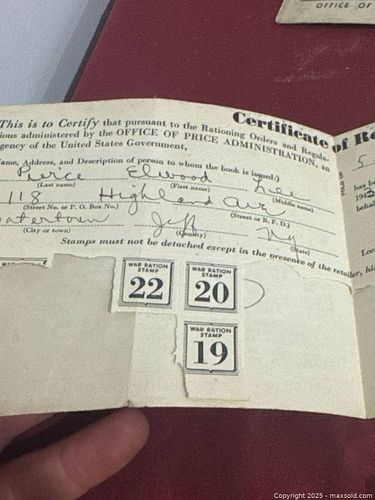 OFFICE OF
Certificate of R
This is to Certify that pursuant to the Rationing Orders and Regula-
ions administered by the OFFICE OF PRICE ADMINISTRATION, an
gency of the United States Government,
ame, Address, and Description of person to whom the book is issued:)
Pierce Elwood Lee
(Last name) (First name) (Middle name)
118 Highland ave
(Street No. or P. O. Box No.) (Street or R. F. D.)
atertown Jeff Ny
(City or town) (County) (State)
Stamps must not be detached except in the presence of the retailer, his
5
has be
behal
Loc
WAR RATION
STAMP
22
WAR RATION
STAMP
20
WAR RATION
STAMP
19
Copyright 2025 - maxsold.com